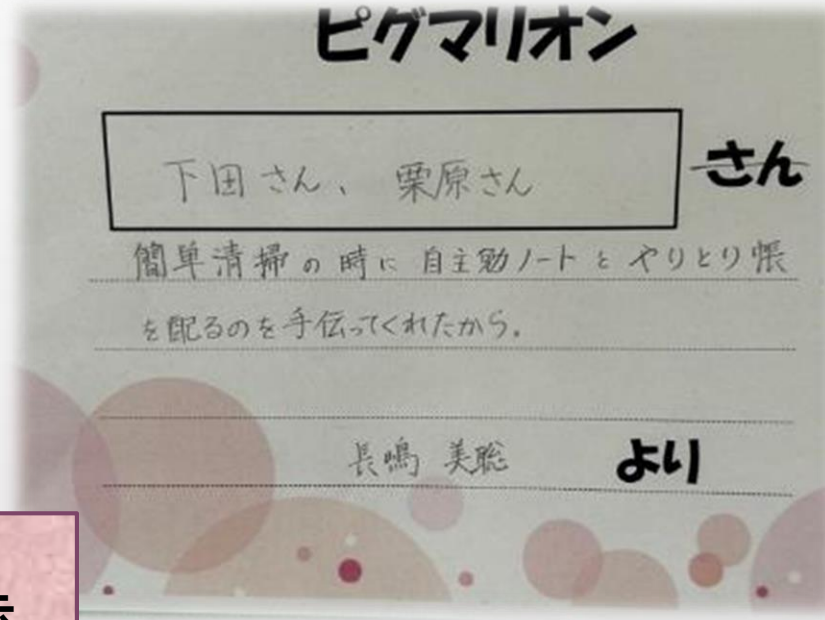 ピグマリオン
下田さん、栗原さん さん
簡単清掃の時に自主勉ノートとやりとり帳
を配るのを手伝ってくれたから。
長嶋 美聡 より